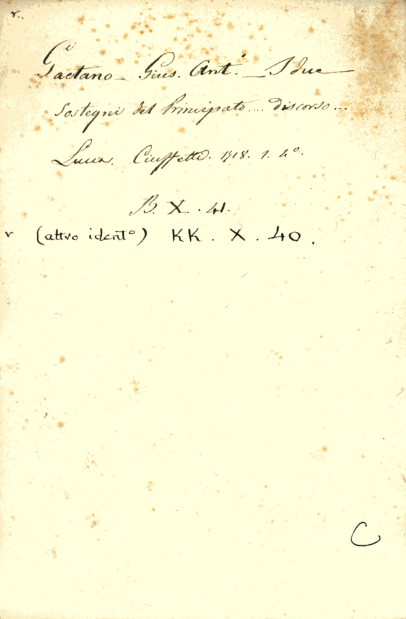 v.
Gaetano - Gius. Ant.° - I due
Sostegni del Principato.... discorso...
Lucca. Ciuffetti. 1718. 1. 4°.
B. X. 41.
v (altro ident°) KK. X. 40.
C